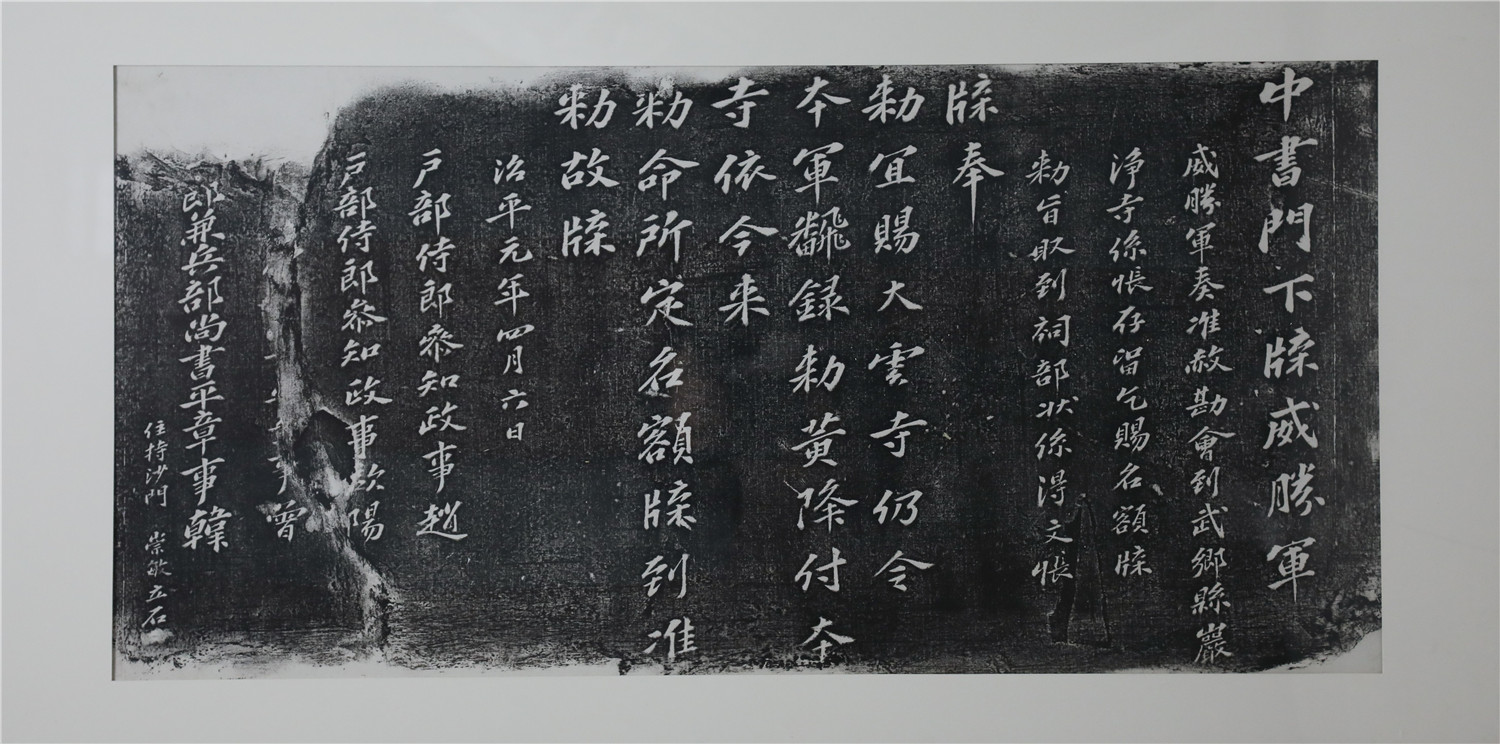 中書門下牒威勝軍
威勝軍奏准赦勘會到武鄉縣巖
淨寺係帳存留乞賜名額牒
勑旨取到祠部狀係淂文帳
牒奉
勑宜賜大雲寺仍令
本軍飜錄勑黃降付本
寺依今来
勑命所定名額牒到准
勑故牒
治平元年四月六日
戶部侍郎叅知政事趙
戶部侍郎叅知政事歐陽
事曾
郎兼兵部尚書平章事韓
住持沙門 崇敏立石